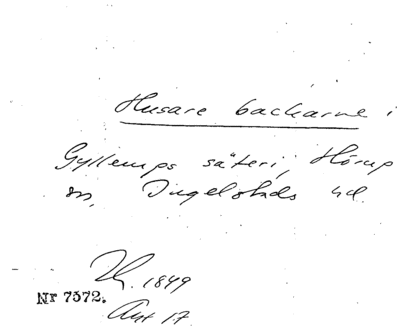 Husare backarne i
Gyllerups säteri, Hörup
sn, Ingelstads hd.
1849
Nr 7372.
Art 17